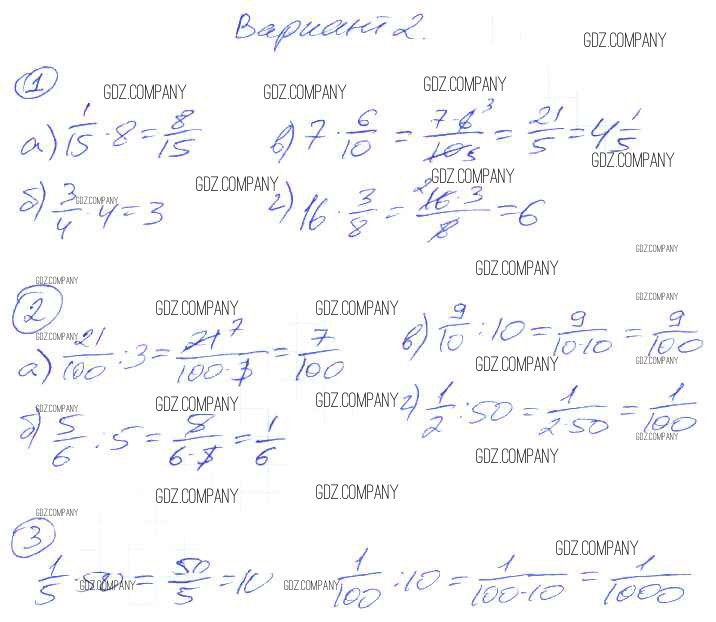 Вариант 2.
GDZ.COMPANY
1
GDZ.COMPANY GDZ.COMPANY GDZ.COMPANY
а) 1/15 · 8 = 8/15 в) 7 · 6/10 = 7·6 3/10 5 = 21/5 = 4 1/5
GDZ.COMPANY
GDZ.COMPANY GDZ.COMPANY
б) 3/4 · 4 = 3 г) 16 · 3/8 = 2 16·3/8 = 6
GDZ.COMPANY
GDZ.COMPANY
GDZ.COMPANY
GDZ.COMPANY
2
GDZ.COMPANY
GDZ.COMPANY GDZ.COMPANY
GDZ.COMPANY
а) 21/100 : 3 = 21 7/100·3 = 7/100 в) 9/10 : 10 = 9/10·10 = 9/100
GDZ.COMPANY GDZ.COMPANY
GDZ.COMPANY GDZ.COMPANY GDZ.COMPANY
б) 5/6 : 5 = 5/6·5 = 1/6 г) 1/2 : 50 = 1/2·50 = 1/100
GDZ.COMPANY
GDZ.COMPANY
GDZ.COMPANY GDZ.COMPANY
GDZ.COMPANY
3
GDZ.COMPANY
1/5 · 50 = 50/5 = 10 1/100 : 10 = 1/100·10 = 1/1000
GDZ.COMPANY GDZ.COMPANY